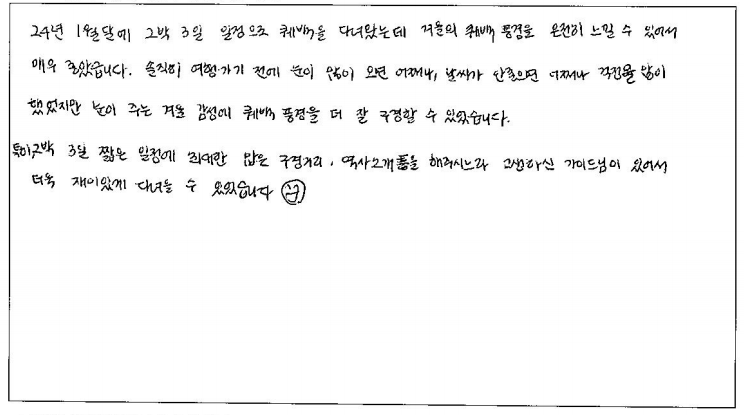 24년 1월달에 2박 3일 일정으로 퀘백을 다녀왔는데 겨울의 퀘백 풍경을 온전히 느낄 수 있어서
매우 좋았습니다. 솔직히 여행가기 전에 눈이 많이 오면 어쩌나, 날씨가 안좋으면 어쩌나 걱정을 많이
했었지만 눈이 주는 겨울 감성에 퀘백 풍경을 더 잘 구경할 수 있었습니다.
특히, 2박 3일 짧은 일정에 최대한 많은 구경거리, 역사소개를 해주시느라 고생하신 가이드님이 있어서
더욱 재미있게 다녀올 수 있었습니다